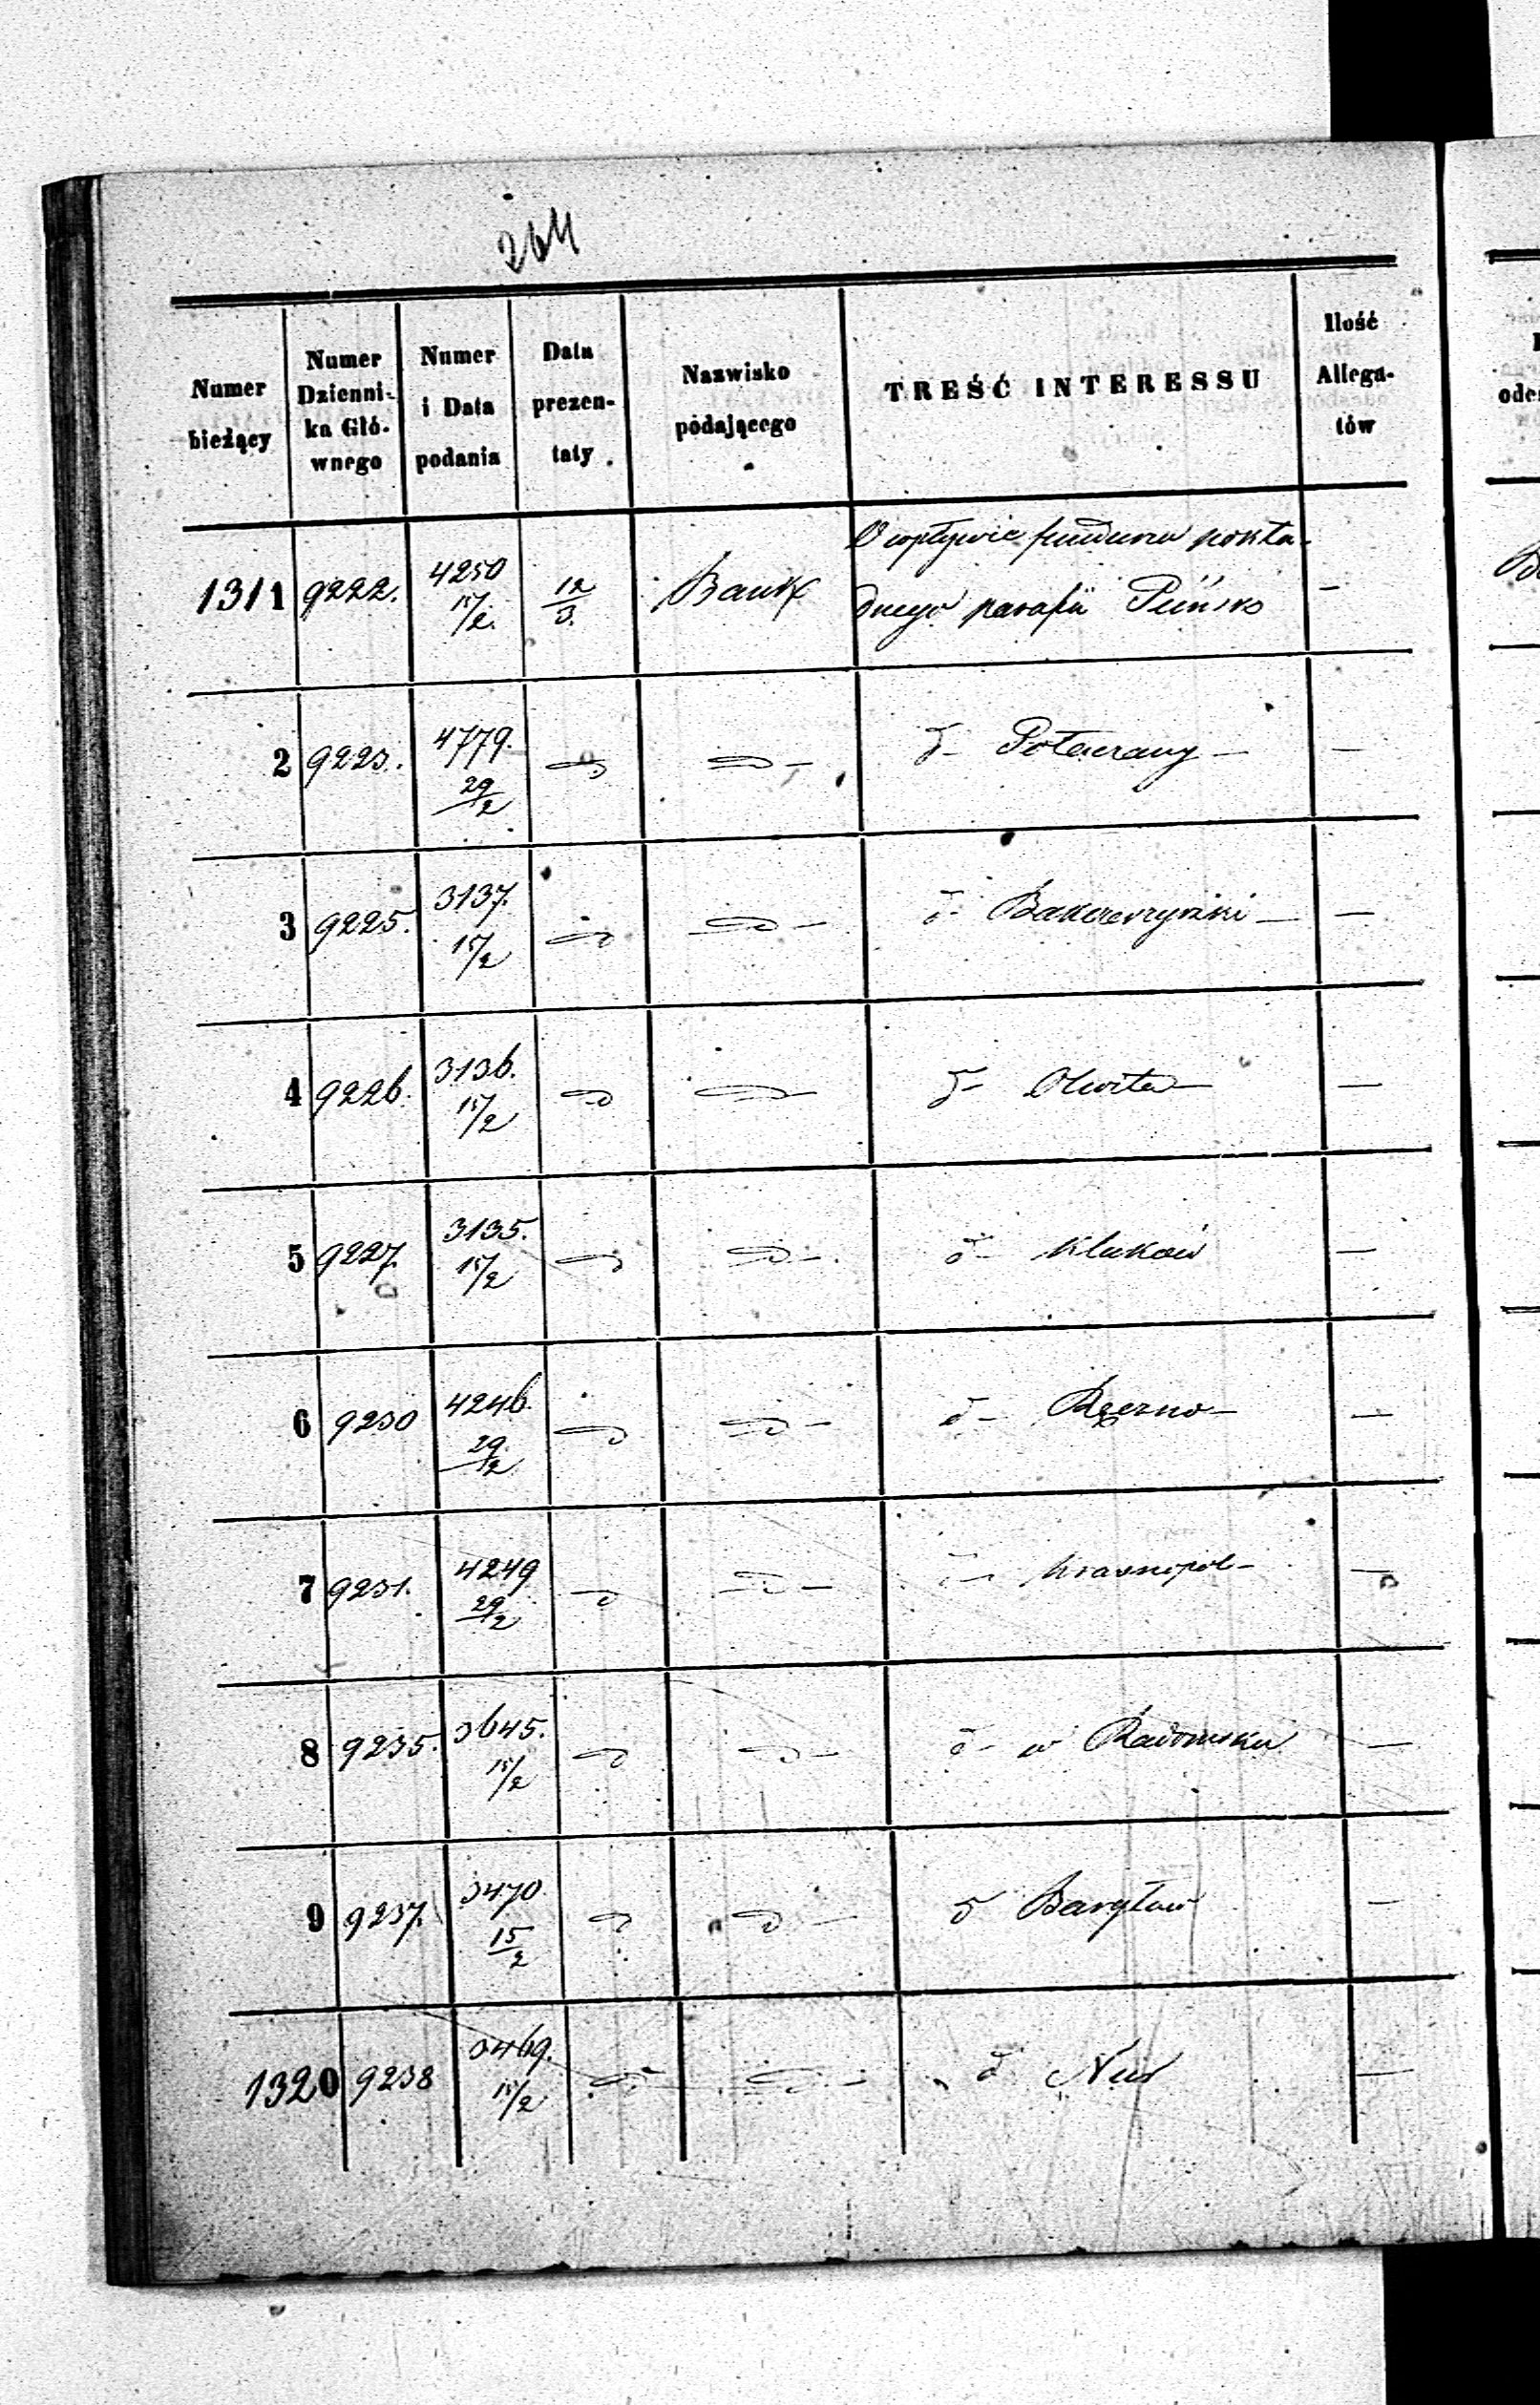 264
Numer bieżący
Numer Dzienni- ka Głó- wnego
Numer i Data podania
Data prezen- taty
Nazwisko podającego
TREŚĆ INTERESSU
Ilość Allega- tów
1311 9222. 4250 15/2. 12/3. Bank O wpływie funduszu pokła-
dnego parafii Puńsko —
2 9223. 4779. 29/2 —d —d— d- Poteurany — —
3 9225. 3137. 15/2 —d —d— d- Bakczerzyszki — —
4 9226. 3136. 15/2 —d —d— d- Olwita — —
5 9227. 3135. 15/2 —d —d— d- Kluków —
6 9230 4246. 29/2 —d —d— d- Ręczno — —
7 9231. 4249 29/2 —d —d— d- Krasnopol — —
8 9235. 3645. 15/2 —d —d— d- w Radomsku —
9 9237. 3470 15/2 —d —d— d Baryław —
1320 9238 3469. 15/2 —d —d— d Nur —